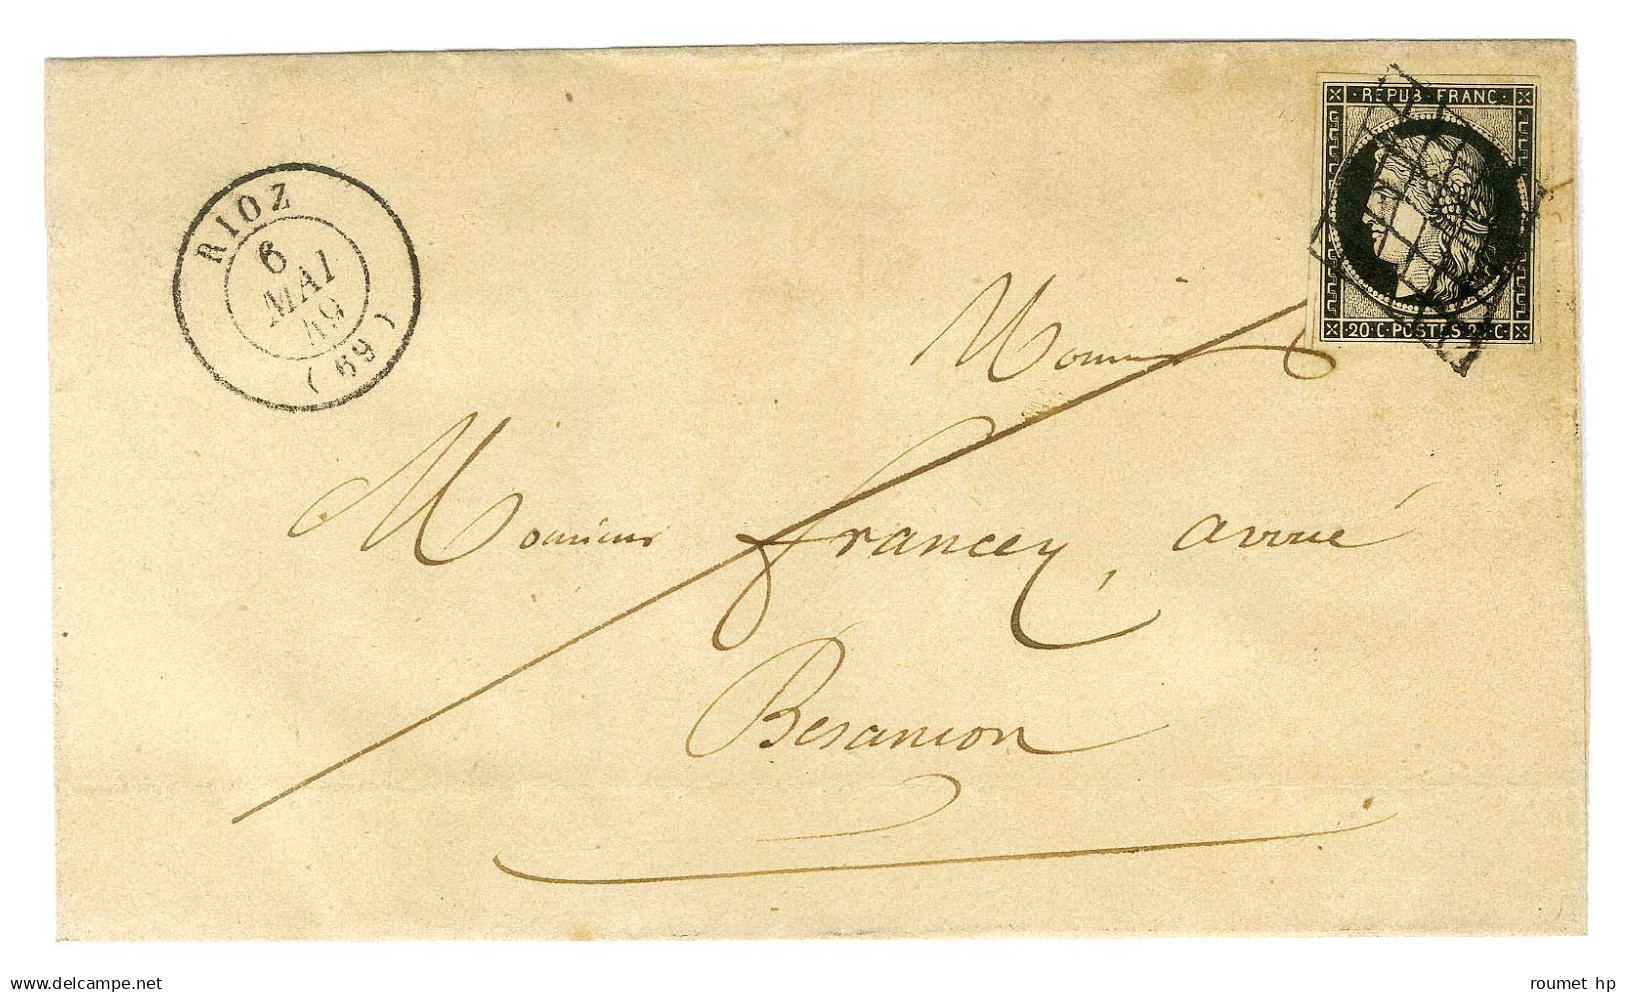 REPUB. FRANC.
20.C.POSTES.2 C
RIOZ
6
MAI
49
(69)
Monsieur
Monsieur francey, avoué
Besançon
roumet hp